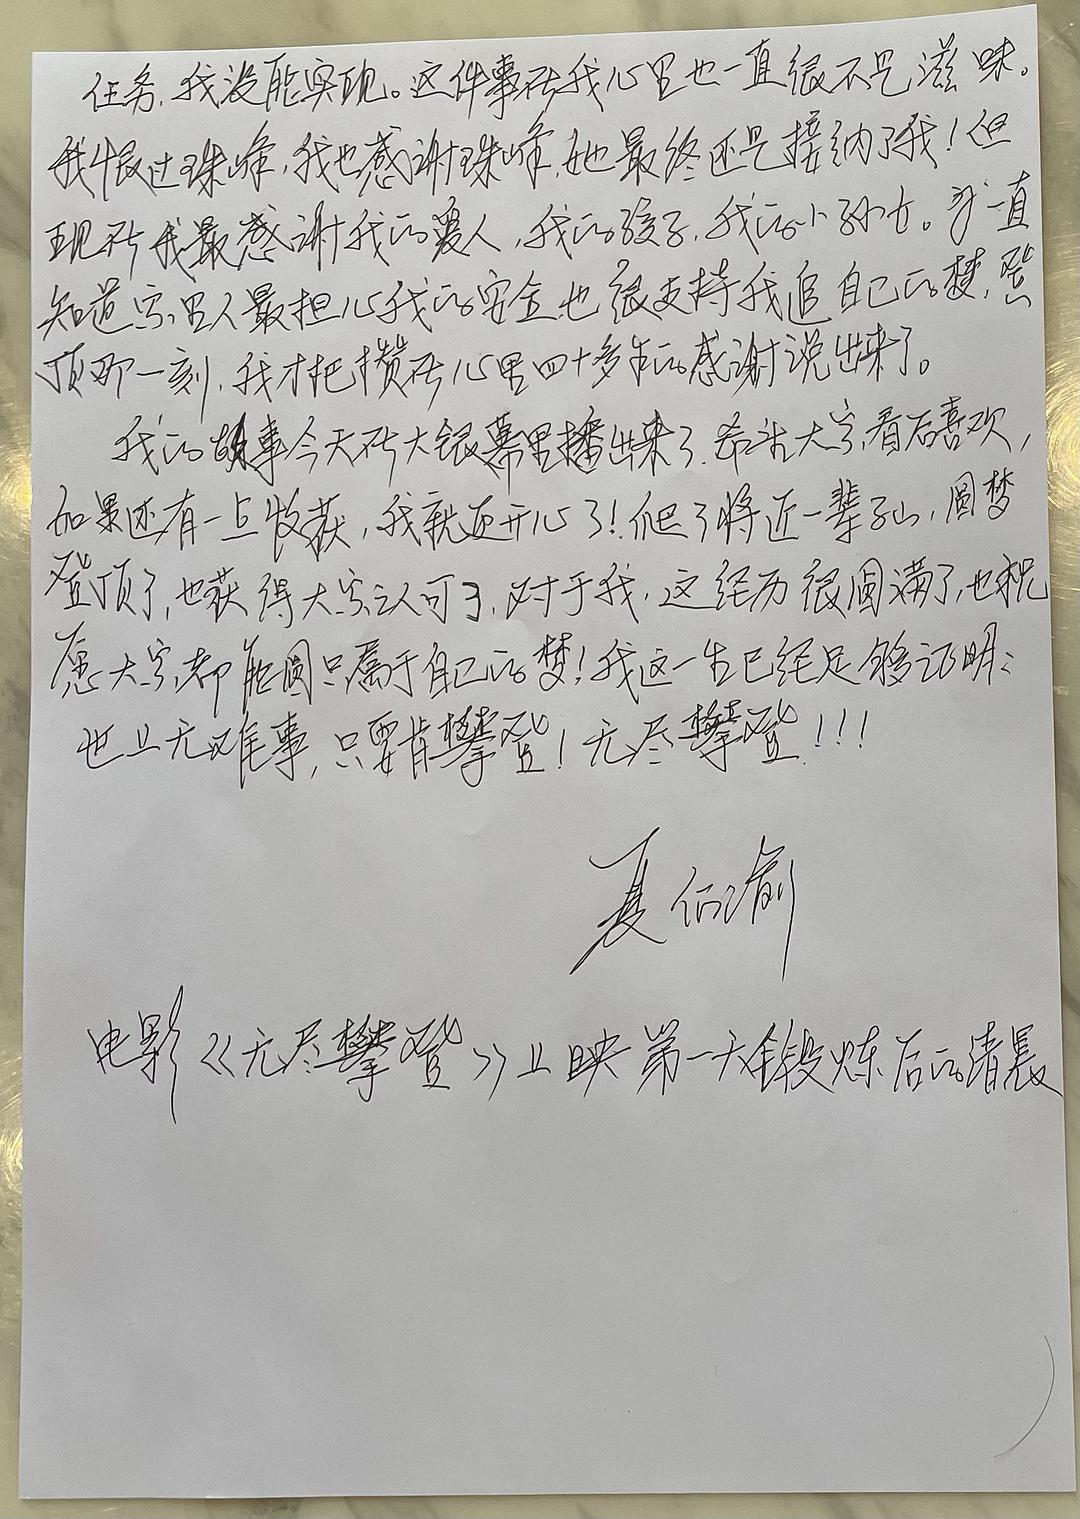 任务，我没能实现。这件事在我心里也一直很不是滋味。
我恨过珠峰，我也感谢珠峰，她最终还是接纳了我！但
现在我最感谢我的爱人，我的孩子，我的小孙女。我一直
知道家里人最担心我的安全，也很支持我追自己的梦，登
顶那一刻，我才把攒在心里四十多年的感谢说出来了。
我的故事今天在大银幕里播出来了，希望大家看后喜欢，
如果还有一点收获，我就更开心了！爬了将近一辈子山，圆梦
登顶了，也获得大家认可了，对于我，这经历很圆满了，也祝
愿大家都能圆只属于自己的梦！我这一生已经足够证明：
世上无难事，只要肯攀登！无尽攀登！！！
夏伯渝
电影《无尽攀登》上映第一天锻炼后的清晨